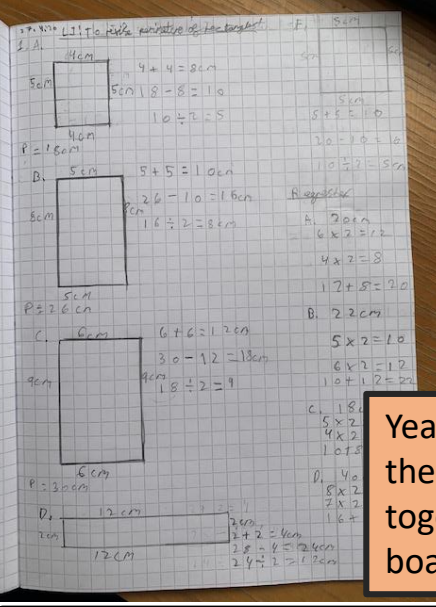 27.4.20 L.I: To
1. A.
4cm
5cm
5cm
4cm
P = 18cm
4 + 4 = 8cm
18 - 8 = 10
10 ÷ 2 = 5
B.
5cm
8cm
8cm
5cm
P = 26cm
5 + 5 = 10cm
26 - 10 = 16cm
16 ÷ 2 = 8cm
C.
6cm
9cm
9cm
6cm
P = 30cm
6 + 6 = 12cm
30 - 12 = 18cm
18 ÷ 2 = 9
D.
12cm
2cm
2cm
12cm
2 + 2 = 4cm
28 - 4 = 24cm
24 ÷ 2 = 12cm
F.
5cm
5cm
5cm
5 + 5 = 10
20 - 10 = 10
10 ÷ 2 = 5cm
A. 20cm
6 x 2 = 12
4 x 2 = 8
12 + 8 = 20
B. 22cm
5 x 2 = 10
6 x 2 = 12
10 + 12 = 22
C. 18
5 x 2
4 x 2
10 + 8
D. 40
8 x 2
7 x 2
16 +
Yea
the
tog
boa